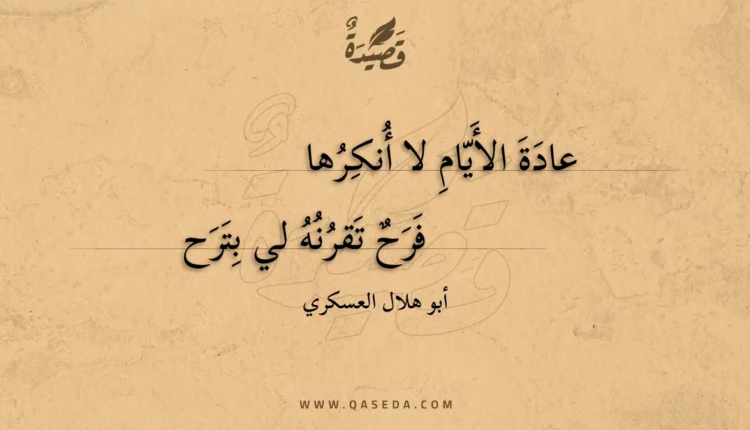 قَصِيْدَةٌ
عادَةَ الأَيّامِ لا أُنكِرُها
فَرَحٌ تَقرُنُهُ لي بِتَرَح
أبو هلال العسكري
WWW.QASEDA.COM